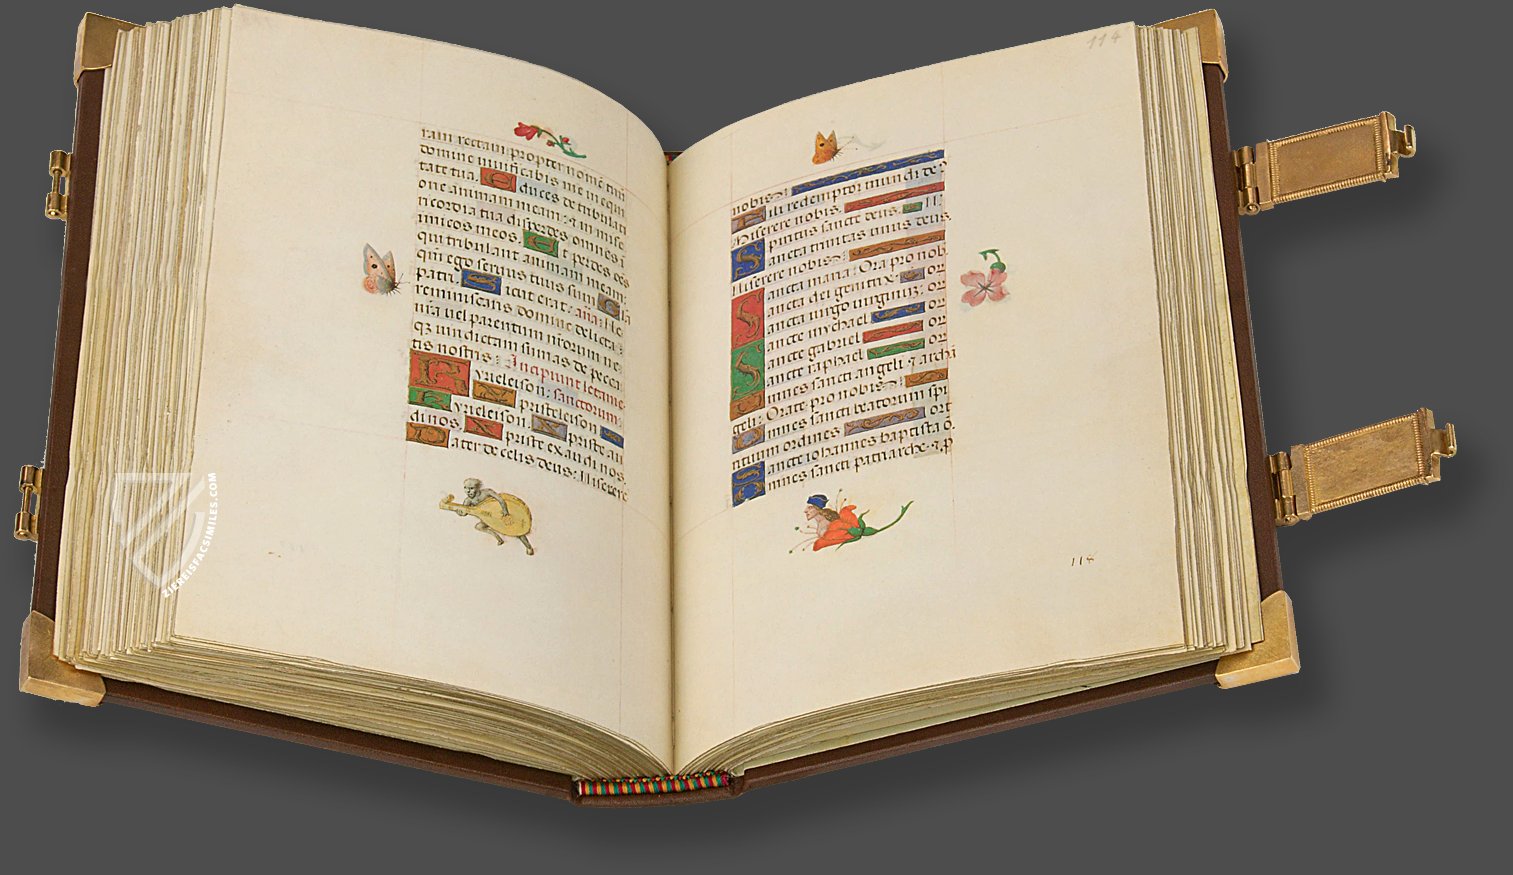 ram rectam: propter nomē tuū
domine uiuificabis me in equi
tate tua. Educes de tribulati
one animam meam: ⁊ in mise
ricordia tua disperdes omnes i
nimicos meos. Et perdes oēs
qui tribulant animam meam:
qm̄ ego seruus tuus sum Glā
patri. Sicut erat: aña: Ne
reminiscaris domine delicta:
nr̄a uel parentum nr̄orum ne
qz uindictam sumas de pecca
tis nostris: Incipiunt letanie
Kyrieleison: sanctorum:
Kyrieleison. Xpristeleison
di nos. Xpriste Xpriste au
Pater de celis deus: Miserere
Xpriste exaudi nos
114
nobis:
Fili redemptor mundi de9
Miserere nobis.
Spiritus sancte deus. M:
Sancta trinitas unus deus.
Miserere nobis:
Sancta maria: Ora pro nob
Sancta dei genitrix: or
Sancta uirgo uirginū: or
Sancte mychael or
Sancte gabriel or
Sancte raphael or
Omnes sancti angeli ⁊ archā
geli: Orate pro nobis:
Omnes sancti beatorum spi
rituum ordines ort
Sancte iohannes baptista ō.
Omnes sancti patriarche ⁊ p
114
ZIEREISFACSIMILES.COM